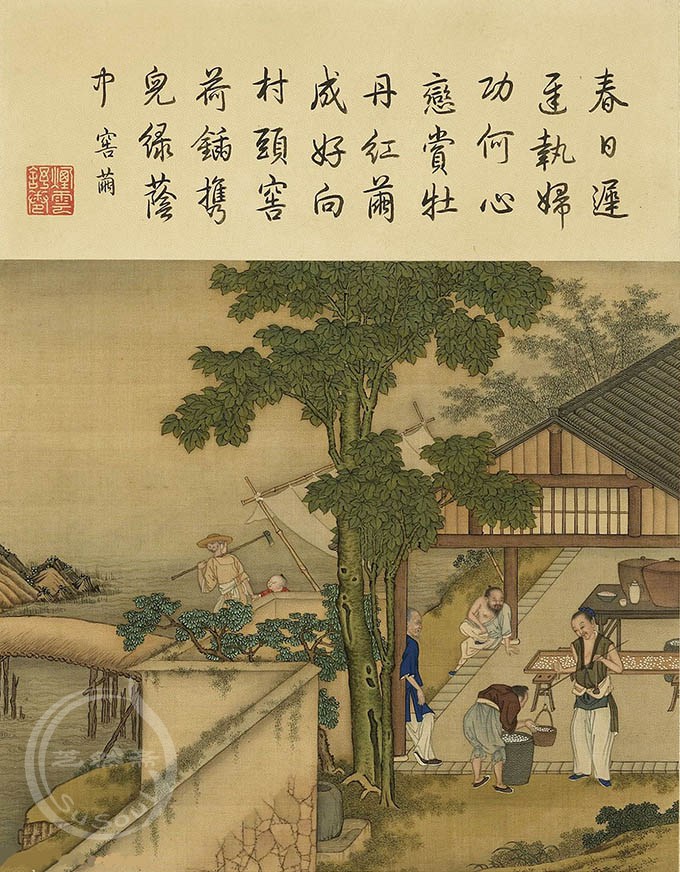 春日遲
遲執婦
功何心
戀賞牡
丹紅繭
成好向
村頭窖
荷鍤攜
兒綠蔭
中 窖繭
煙雲
舒卷